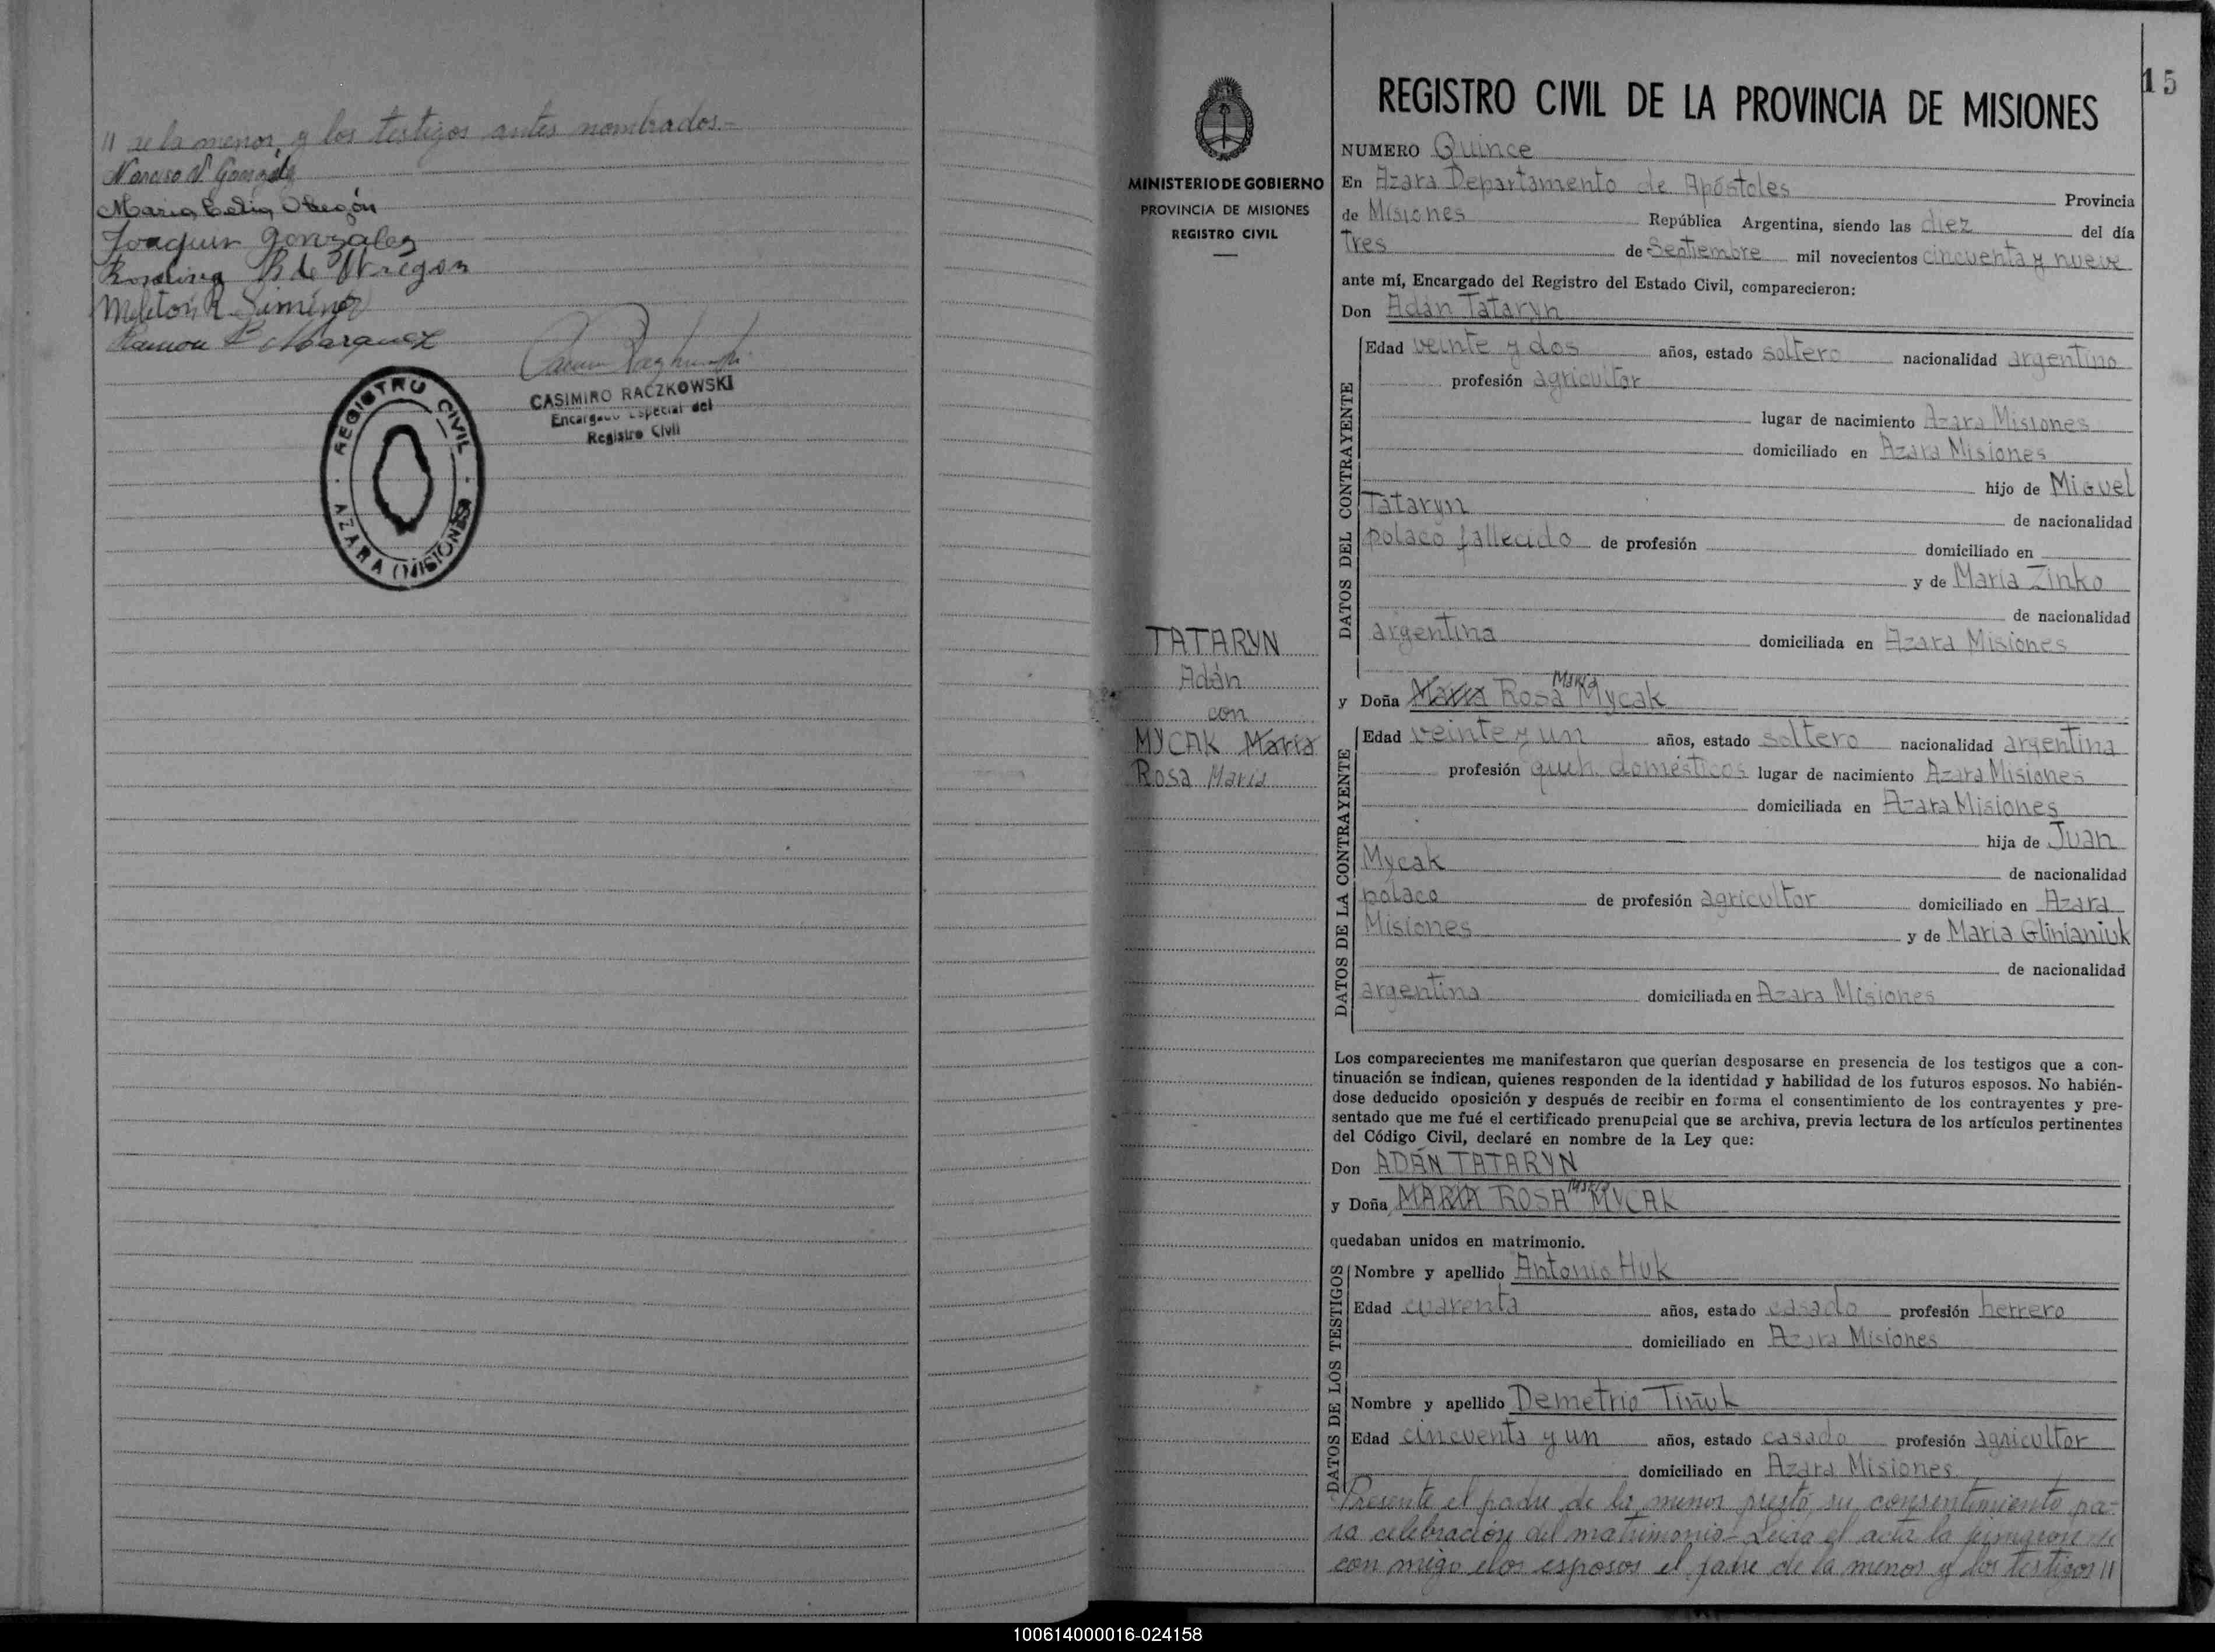 // de la menor, y los testigos antes nombrados.-
Narciso V. González
Maria Celia Obregón
Joaquin Gonzalez
Rosalina B de Obregon
Meliton R. Jiménez
Ramon B. Marquez
CASIMIRO RACZKOWSKI
Encargado Especial del
Registro Civil
REGISTRO CIVIL
AZARA (MISIONES)
15
MINISTERIO DE GOBIERNO
PROVINCIA DE MISIONES
REGISTRO CIVIL
TATARYN
Adán
con
MYCAK María
Rosa María
REGISTRO CIVIL DE LA PROVINCIA DE MISIONES
NUMERO Quince
En Azara Departamento de Apóstoles Provincia
de Misiones República Argentina, siendo las diez del día
Tres de Septiembre mil novecientos cincuenta y nueve
ante mí, Encargado del Registro del Estado Civil, comparecieron:
Don Adán Tataryn
DATOS DEL CONTRAYENTE
Edad veinte y dos años, estado soltero nacionalidad argentino
profesión agricultor
lugar de nacimiento Azara Misiones
domiciliado en Azara Misiones
hijo de Miguel
Tataryn de nacionalidad
polaco fallecido de profesión domiciliado en
y de María Zinko
de nacionalidad
argentina domiciliada en Azara Misiones
y Doña María Rosa María Mycak
DATOS DE LA CONTRAYENTE
Edad veinte y un años, estado soltero nacionalidad argentina
profesión queh. domésticos lugar de nacimiento Azara Misiones
domiciliada en Azara Misiones
hija de Juan
Mycak de nacionalidad
polaco de profesión agricultor domiciliado en Azara
Misiones y de María Glinianiuk
de nacionalidad
argentina domiciliada en Azara Misiones
Los comparecientes me manifestaron que querían desposarse en presencia de los testigos que a con-
tinuación se indican, quienes responden de la identidad y habilidad de los futuros esposos. No habién-
dose deducido oposición y después de recibir en forma el consentimiento de los contrayentes y pre-
sentado que me fué el certificado prenupcial que se archiva, previa lectura de los artículos pertinentes
del Código Civil, declaré en nombre de la Ley que:
Don ADÁN TATARYN
y Doña MARIA ROSA María MYCAK
quedaban unidos en matrimonio.
DATOS DE LOS TESTIGOS
Nombre y apellido Antonio Huk
Edad cuarenta años, estado casado profesión herrero
domiciliado en Azara Misiones
Nombre y apellido Demetrio Tiñuk
Edad cincuenta y un años, estado casado profesión agricultor
domiciliado en Azara Misiones
Presente el padre de la menor prestó su consentimiento pa-
ra celebración del matrimonio - Leida el acta la firmaron
con migo los esposos el padre de la menor y los testigos //
100614000016-024158